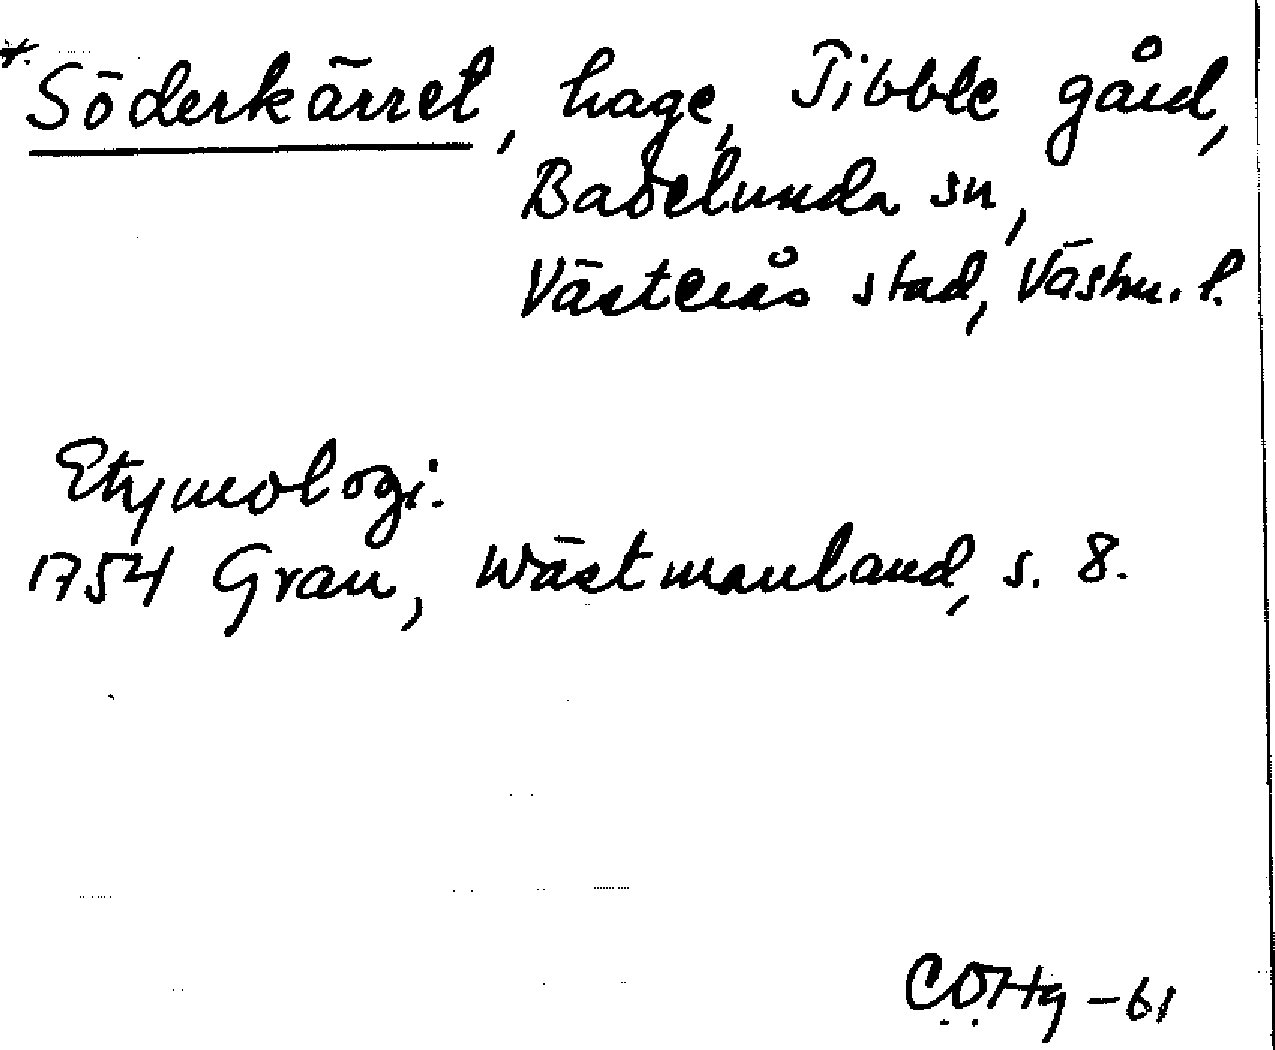 *Söderkärret, hage, Tibble gård,
Badelunda sn,
Västerås stad, Västm. l.
Etymologi:
1754 Grau, Wästmanland, s. 8.
COHg -61